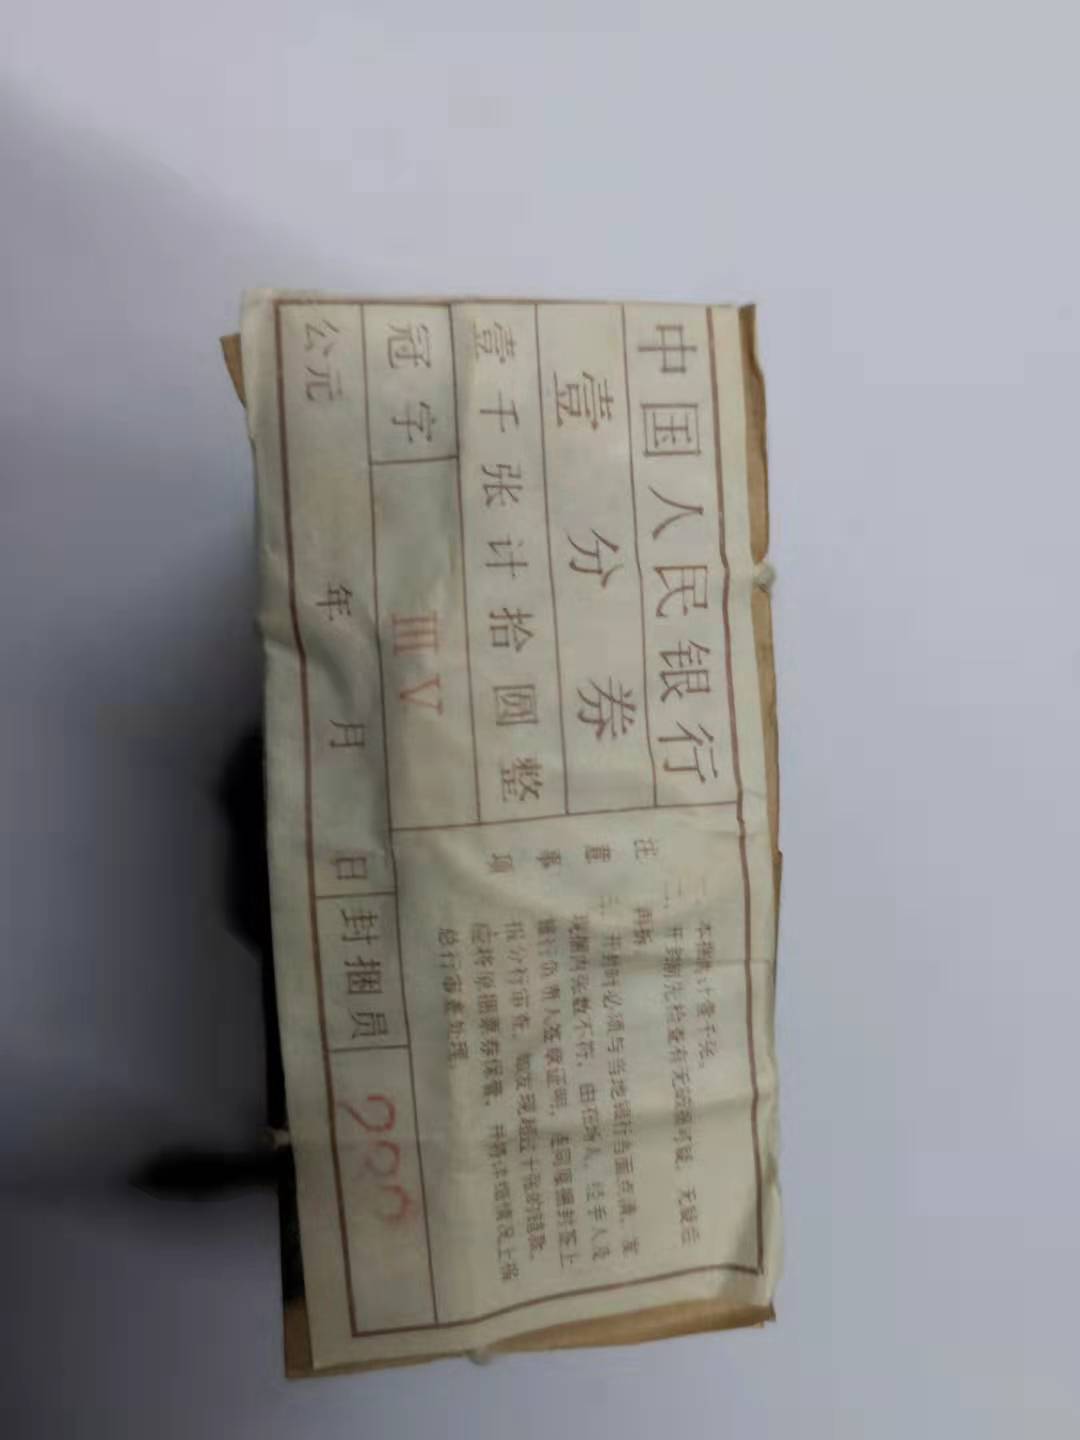 中国人民银行
壹分券
壹千张计拾圆整
冠字 ⅢⅤ
公元 年 月 日
封捆员 290
注意事项
一、本捆共计壹千张。
二、开封前先检查有无破绽可疑，无疑后
再拆。
三、开封时必须与当地银行当面点清，发
现捆内张数不符，由在场人、经手人及
银行负责人签章证明，连同原捆封签上
报分行审查。如发现超过十张的错款，
应将原捆票券保管，并将详细情况上报
总行审查处理。